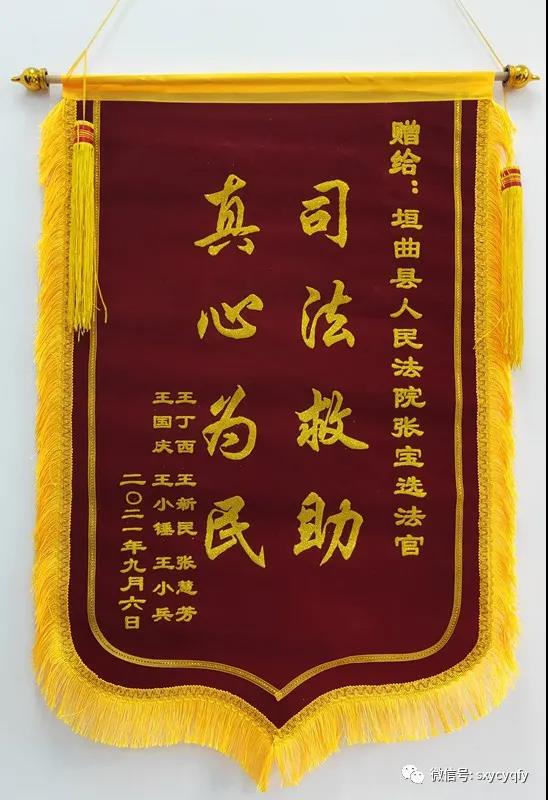 赠给：垣曲县人民法院张宝选法官
司法救助
真心为民
王丁西 王新民 张慧芳
王国庆 王小锤 王小兵
二〇二一年九月六日
微信号: sxycyqfy